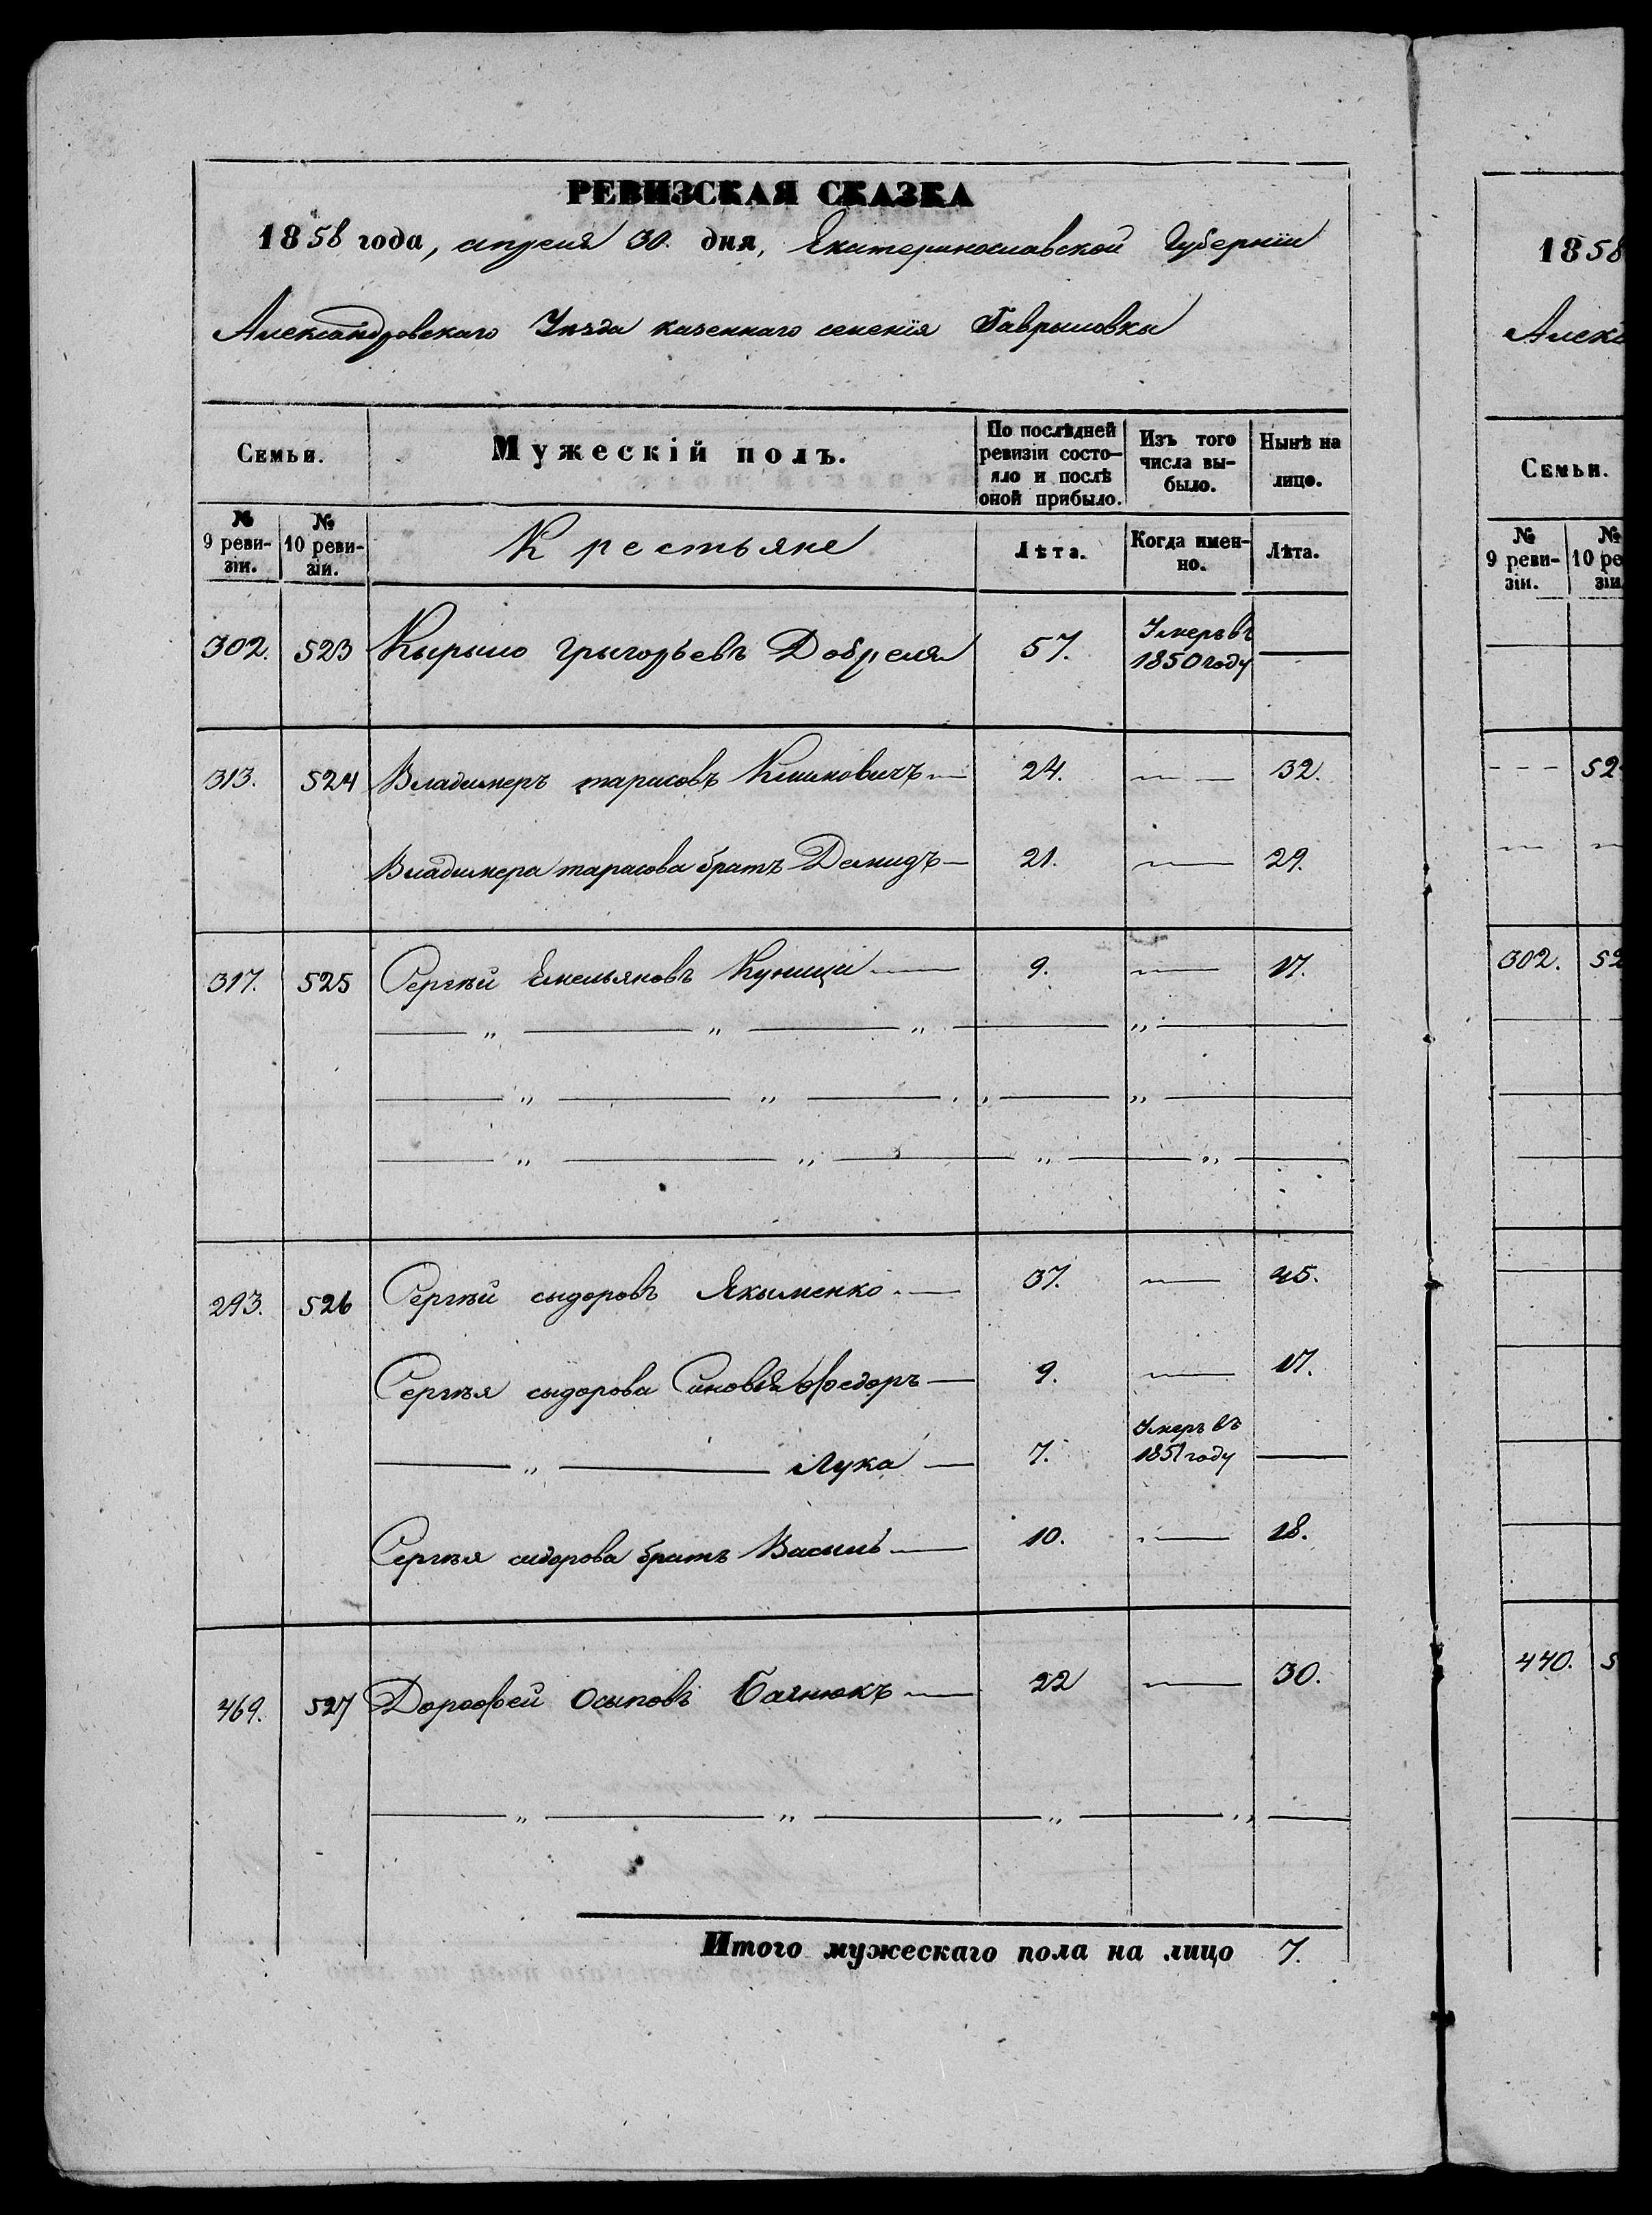 РЕВИЗСКАЯ СКАЗКА
1858 года, апреля 30. дня, Екатеринославской Губернии
Александровскаго Уезда казеннаго селения Гаврыловка
Семьи.
Мужескій полъ.
По послѣдней ревизіи состо-
яло и послѣ
оной прибыло.
Изъ того
числа вы-
было.
Нынѣ на
лицо.
№
9 реви-
зіи.
№
10 реви-
зіи.
Крестьяне
Лѣта.
Когда имен-
но.
Лѣта.
302. 523 Кырыло Грыгорьевъ Добреля 57. Умеръ въ
1850 году —
313. 524 Владимеръ тарасовъ Климовичъ — 24. — 32.
Владимера тарасова братъ Демидъ — 21. — 29.
317. 525 Сергѣй Емельяновъ Куница — 9. — 17.
— „ — „ — „ — „ —
— „ — „ — „ — „ —
— „ — „ — „ — „ —
293. 526 Сергѣй сыдоровъ Якыменко — 37. — 45.
Сергѣя сыдорова Сыновья Ѳедоръ — 9. — 17.
— „ — Лука — 7. Умеръ въ
1851 году —
Сергѣя сидорова братъ Васыль — 10. — 18.
469. 527 Дорофей Осыповъ — 22 — 30.
— „ — „ — „ — „ —
Итого мужескаго пола на лицо 7.
1858
Алекс
Семьи.
№
9 реви-
зіи.
№
10 ре
зіи
— — — 52
302. 52
440. 5